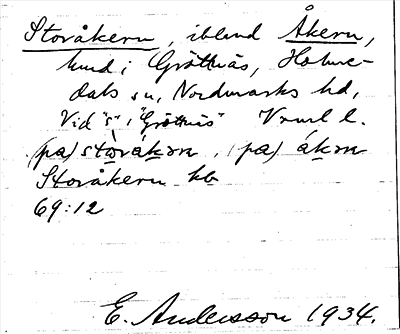 Storåkern, ibland Åkern,
hmd i Gröttnäs, Holme-
dals sn, Nordmarks hd,
Vid "s" i "Gröttnäs" Vrml l.
(pa) stòråkən, (pa) åkən
Storåkern kb
69:12
E. Andersson 1934.